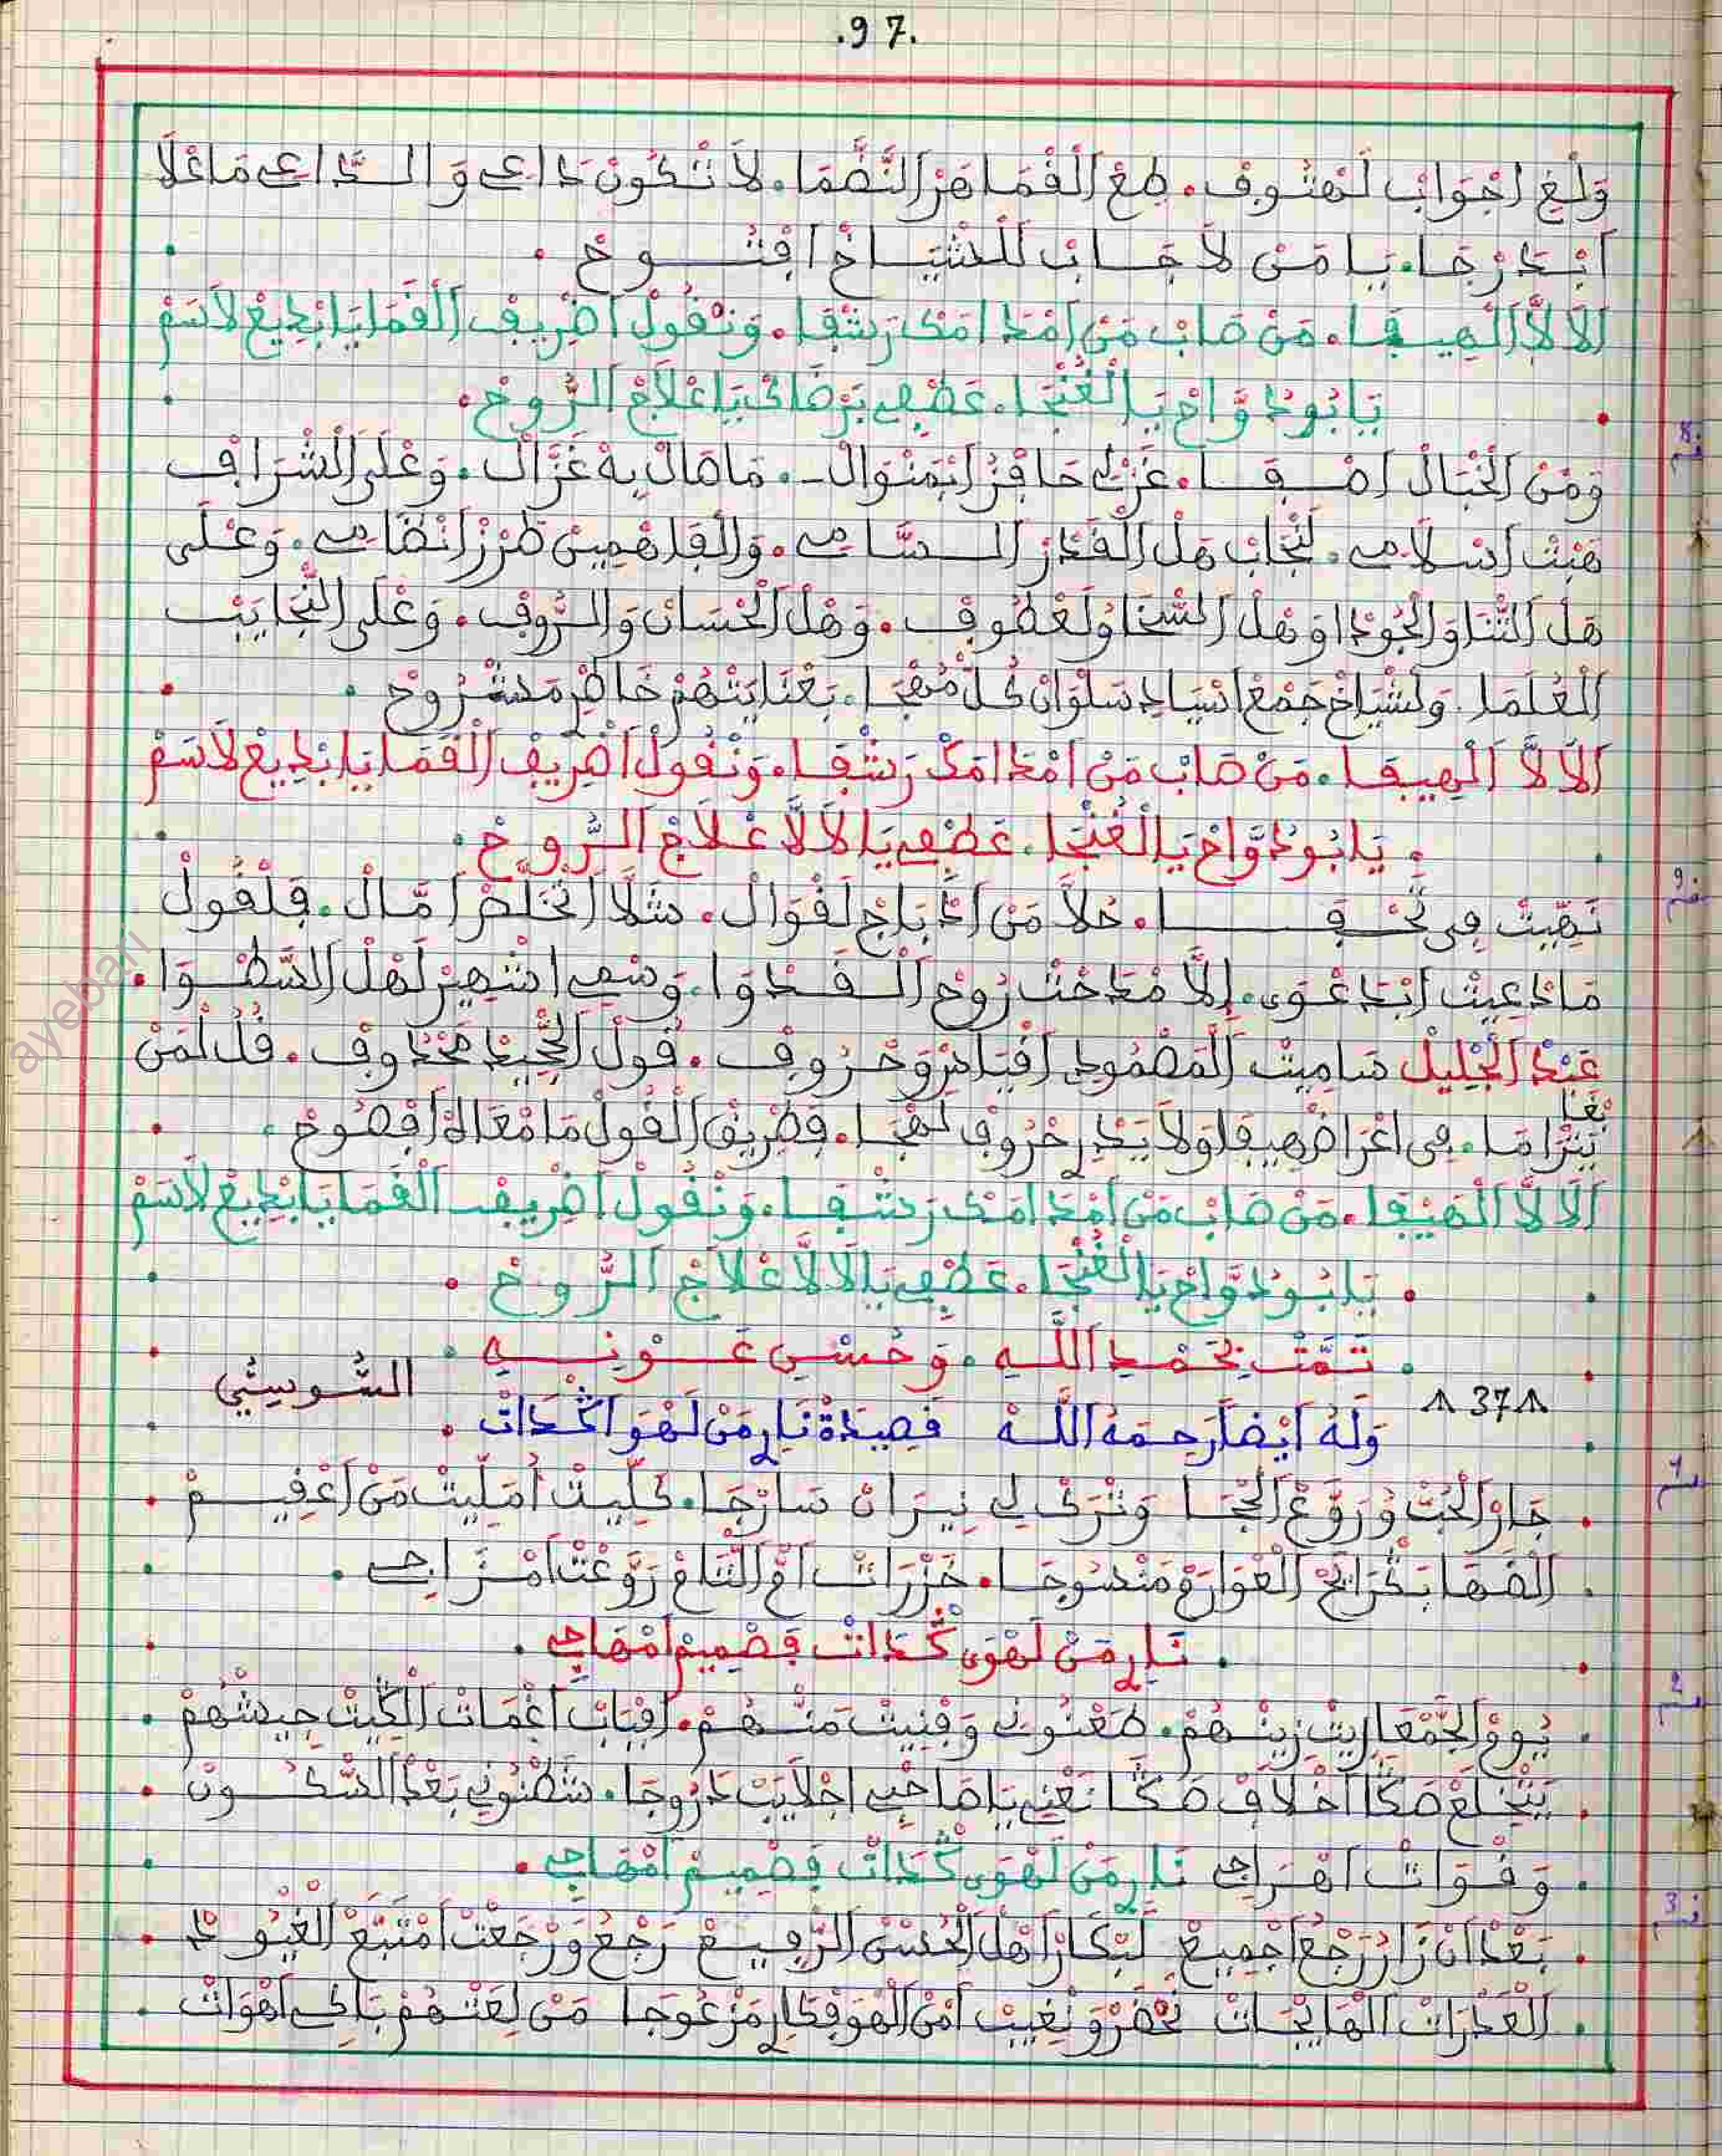 .97.
وَلْغِ اجْوَابْ لَهْتُوفْ. طِعْ الْقُمَاهَرْ النّضْمَا. لَا تْكُونْ دَاعِي وَالدَّاعِي مَاعْلَا
ابْدَرْجَا. يَا مَنْ لَا جَابْ لَلشْيَاخْ افْتُوحْ .
8
ألَالَّا الْهِيفَا. مَنْ صَابْ مَنْ امْدَامَكْ رَشْفَا. وَنْقُولْ اضْرِيفْ الْقَمَا يَا بْدِيعْ لَاسَمْ
يَا بُودْوَّاحْ يَا الْغُنْجَا. عَطْفِي بَرْضَاكْ يَا عْلَاجْ الرُّوحْ.
وَمْنْ الْخْبَالْ اصْفَا. غَزْلِي حَافِزْ ابْمَنْوَالْ. مَا صَالْ بِهْ غَزَّالْ. وَعْلَى الشْرَافْ
هَبْتْ اسْلَامِي. لَنْجَابْ هَلْ الْقَدْرْ السَّامِي. وَالْفَاهْمِينْ طَرْزْ انْظَامِي. وَعْلَى
هَلْ الثْنَا وَالْجُودْ اوَهْلْ السْخَا وَلَعْطُوفْ. وَهْلْ الْحْسَانْ وَالرُّوفْ. وَعْلَى النّْجَايَبْ
الْعُلَمَا. وَلَشْيَاخْ جَمْعْ اسْيَادِ سَلْوَانْ كُلْ مُهْجَا. بَعْنَايَتْهُمْ خَاطْرِ مَشْرُوحْ .
9
ألَالَّا الْهِيفَا. مَنْ صَابْ مَنْ امْدَامَكْ رَشْفَا. وَنْقُولْ اضْرِيفْ الْقَمَا يَا بْدِيعْ لَاسَمْ
. يَا بُودْوَّاحْ يَا الْغُنْجَا. عَطْفِي يَا لَالَّا عْلَاجْ الرُّوحْ.
نَهِّيتْ فِي تُحْفَا. حُلَّا مَنْ ادْبَاجْ لَقْوَالْ. شَلَّا اتْخَلَّصْ امَّالْ. فَلْقُولْ
مَادْعِيتْ ابْدَعْوَى. إِلَّا مْدَحْتْ رُوحْ الْقَدْوَا. وَسْمِي اشْهِيرْ لَهْلْ السَّطْوَا.
عَبْدْ الْجْلِيلْ سَامِيتْ الْمَصْمُودِ افْيَاسْ وَحْرُوفْ. قُولْ الْجْحِيدْ مَحْدُوفْ. قُلْ لْمَنْ
بْغَا
يَتْرَامَا. فِي اعْرَاضْ هِيفَا وَلَا يَدْرِ حْرُوفْ لَهْجَا. فَطْرِيقْ الْقُولْ مَا مْعَاهْ افْصُوحْ .
ألَالَّا الْهِيفَا. مَنْ صَابْ مَنْ امْدَامَكْ رَشْفَا. وَنْقُولْ اضْرِيفْ الْقَمَا يَا بْدِيعْ لَاسَمْ
. يَا بُودْوَّاحْ يَا الْغُنْجَا. عَطْفِي يَا لَالَّا عْلَاجْ الرُّوحْ .
. تَمَّتْ بِحَمْدِ اللَّهِ . وَحُسْنِ عَوْنِهِ
37 السُّوسِيتِي
وَلَهُ أَيْضاً رَحِمَهُ اللَّهْ قَصِيدَةْ نَارِ مَنْ لَهْوَ اكْدَاتْ .
1
. جَارْ الْحُبْ وْرَوَّعْ الْحْجَا وَتْرَكْ لِي نِيرَانْ سَارْجَا. كَلِّيتْ أُمَلِّيتْ مَنْ اعْقِيمْ .
. الْقَهَا بَكْرَايَحْ الْعْوَارَمْ مَنْسُوجَا. حَزْرَاتْ امْ التْنَامْ رَوَّعْتْ امْزَاجِي .
. نَارِ مَنْ لَهْوَى كْدَاتْ فَصْمِيمْ امْهَاجِي .
2
. يُومْ الْجْمْعَا رِيتْ زِينْهُمْ. طَعْنُونِي وَفْنِيتْ مَنْهُمْ. افْبَابْ اغْمَاتْ الْكِيتْ جِيشْهُمْ .
. يَتْخَلَعْ هَكَّا اخْلَافْ هَكَّا نَعْنِي يَا صَاحْبِي اجْلَايَبْ دْرُوجَا. شَطْنُونِي بَعْدْ السّْكُونْ .
. وَقْوَاتْ اهْرَاجِي نَارِ مَنْ لَهْوَى كْدَاتْ فَصْمِيمْ امْهَاجِي .
3
. بَعْدْ انْ زَارْ رَجْعْ اجْمِيعْ لَبْكَارْ اهْلْ الْحُسْنْ الرّْفِيعْ رَجْعْ وَرْجَعْتْ امْتَبَّعْ الْغْيُودْ .
. الْعَدْرَاتْ الْهَايْجَاتْ نَحْضَرْ وَنْغِيبْ امْنْ الْهْوَ فْكَارِ مَزْعُوجَا مَنْ لِعَتْهُمْ بَاكِي اهْوَاتْ .
ayebari